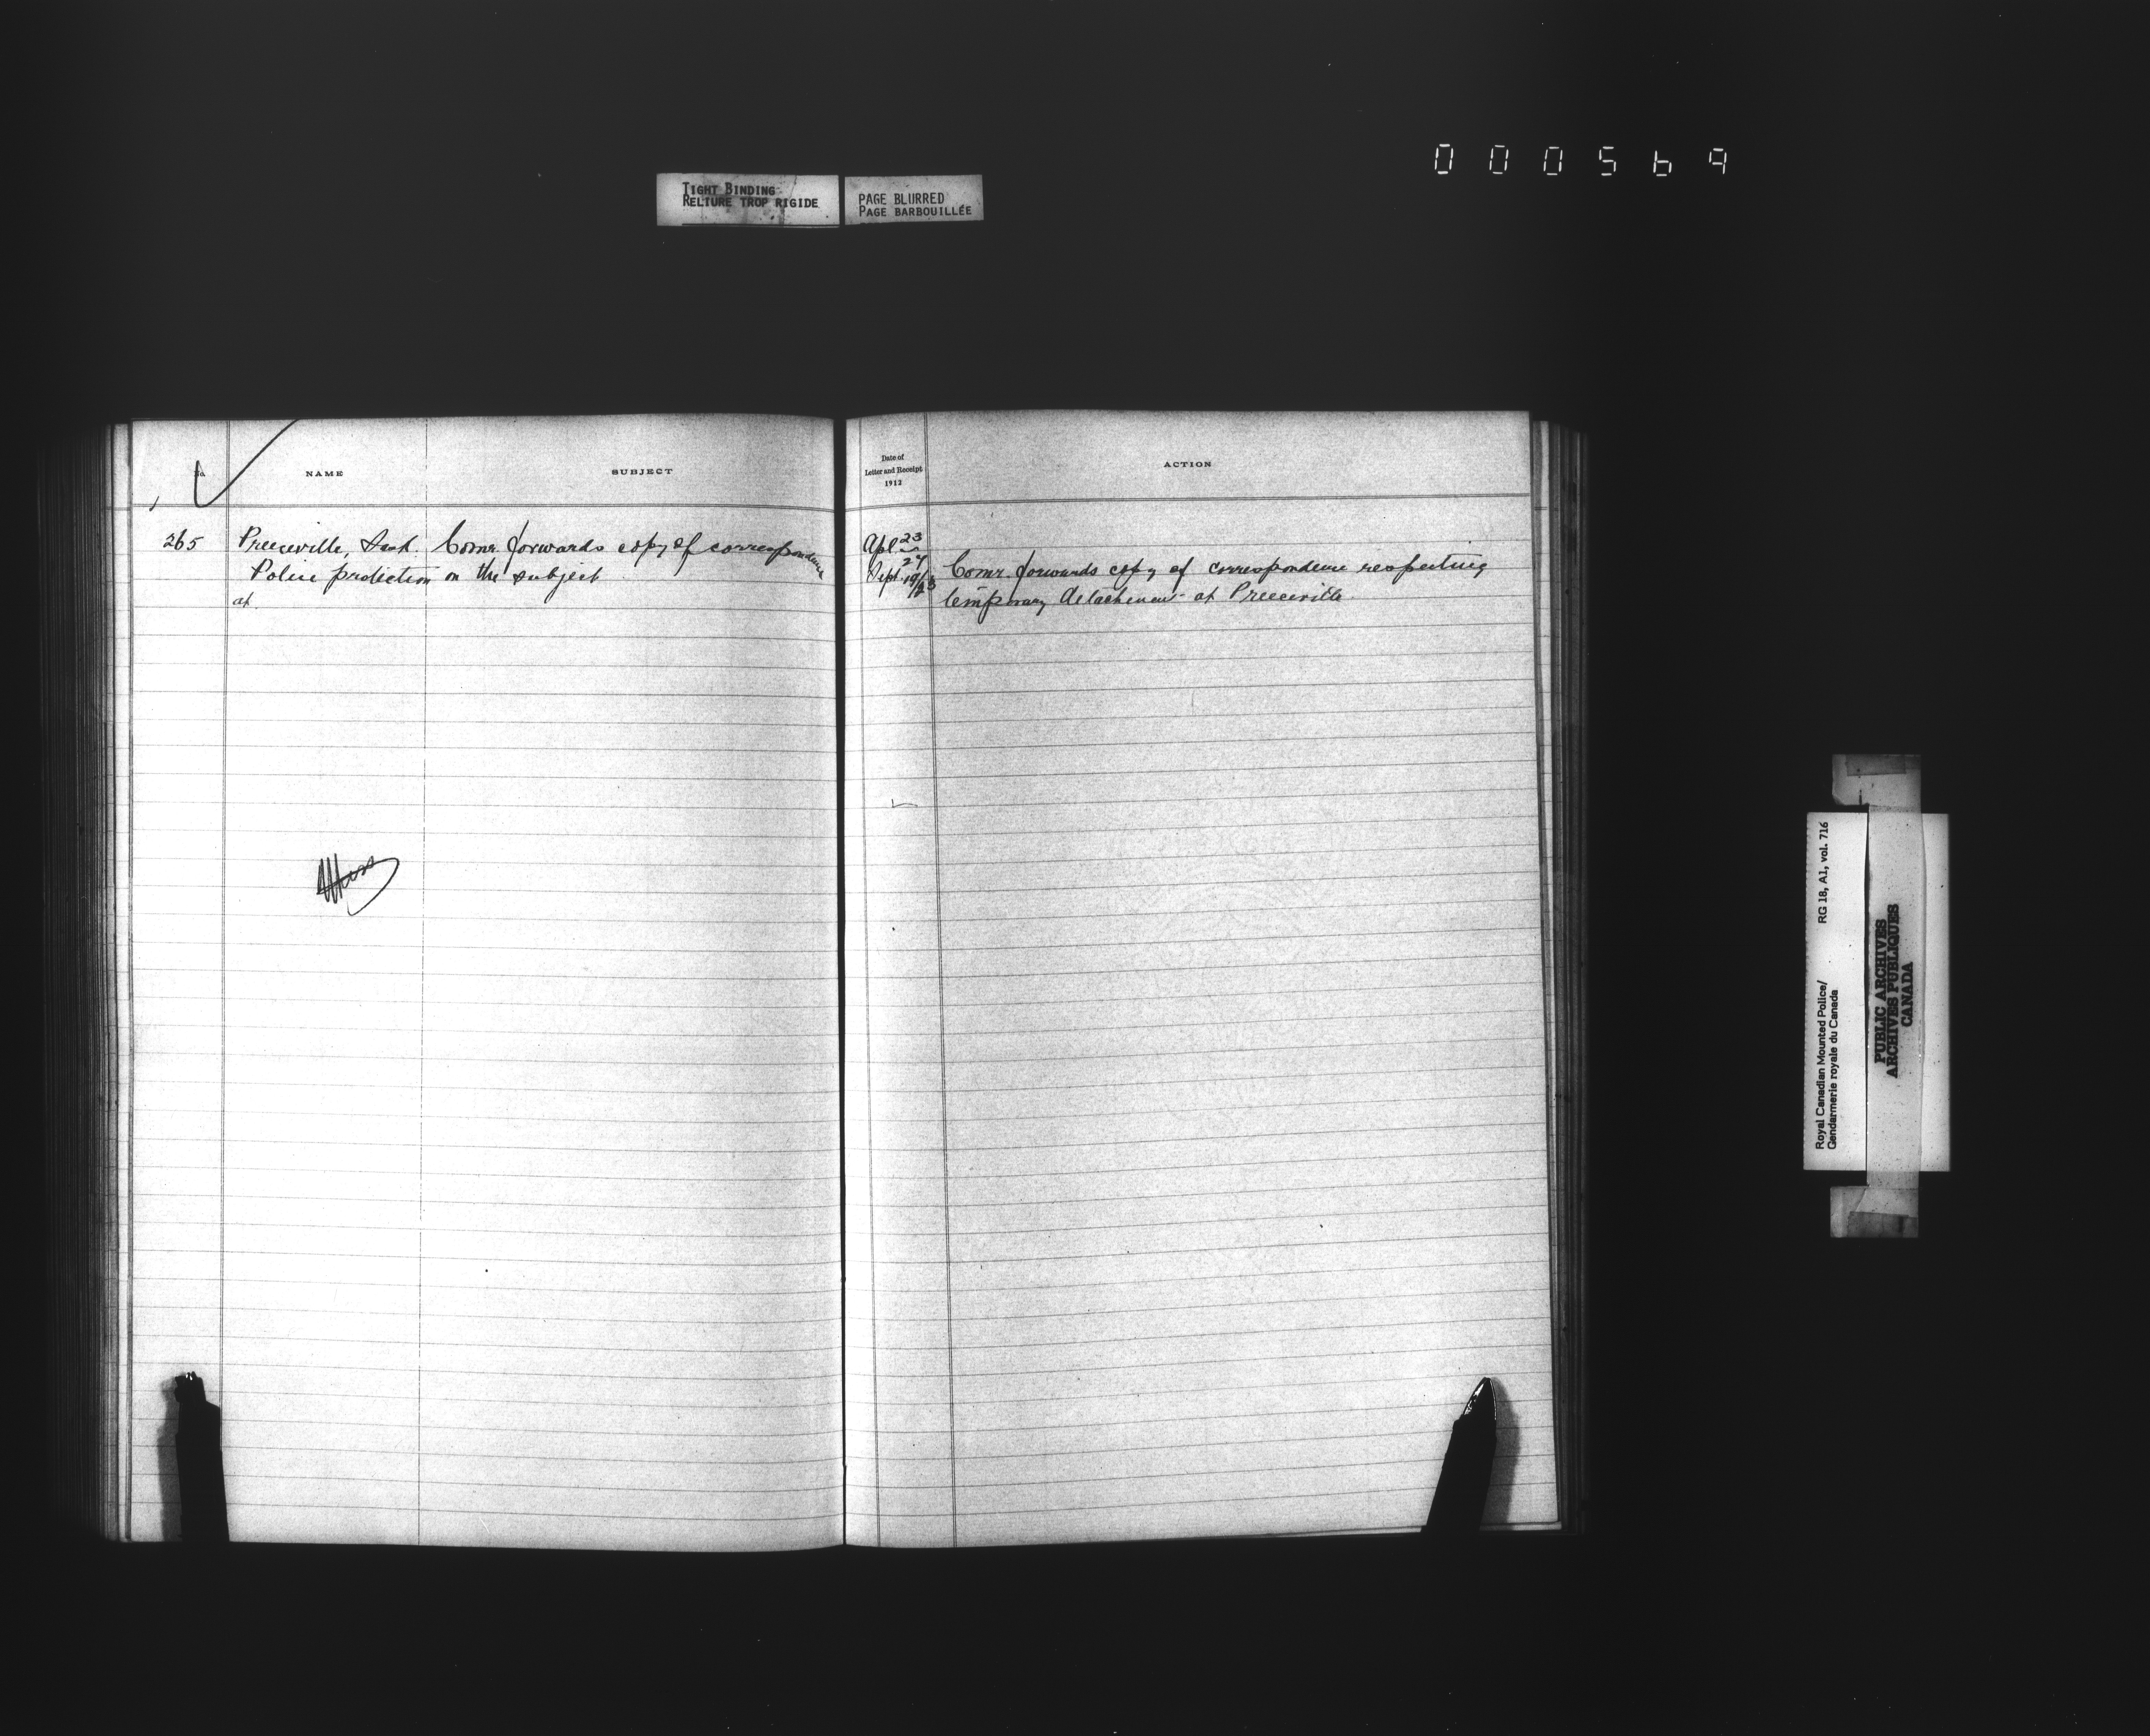 000569
TIGHT BINDING
RELIURE TROP RIGIDE
PAGE BLURRED
PAGE BARBOUILLÉE
No. NAME SUBJECT
265 Preeceville, Sask. Comr. forwards copy of correspondence
Police protection on the subject
at
Date of
Letter and Receipt
1912
ACTION
Apl 23
24
Sept 19/13 Comr. forwards copy of correspondence respecting
temporary detachment at Preeceville
Royal Canadian Mounted Police/ RG 18, A1, vol. 716
Gendarmerie royale du Canada
PUBLIC ARCHIVES
ARCHIVES PUBLIQUES
CANADA